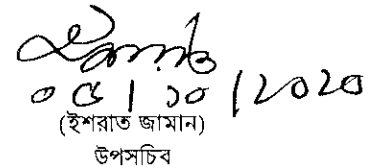 ০৫|১০|২০২০
(ইশরাত জামান)
উপসচিব